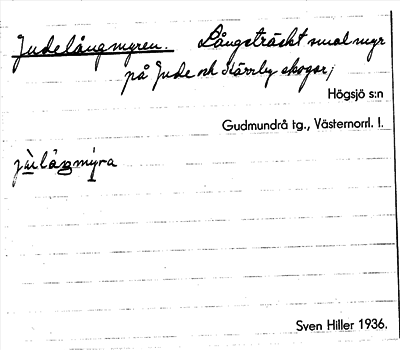 Judelångmyren. Långsträckt smal myr
på Jude och Härsby skogar;
Högsjö s:n
Gudmundrå tg., Västernorrl. l.
Sven Hiller 1936.